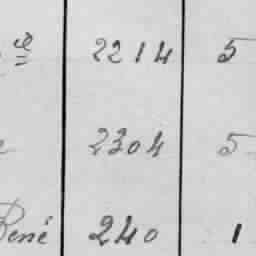 2214 5
2304 5
René 240 1